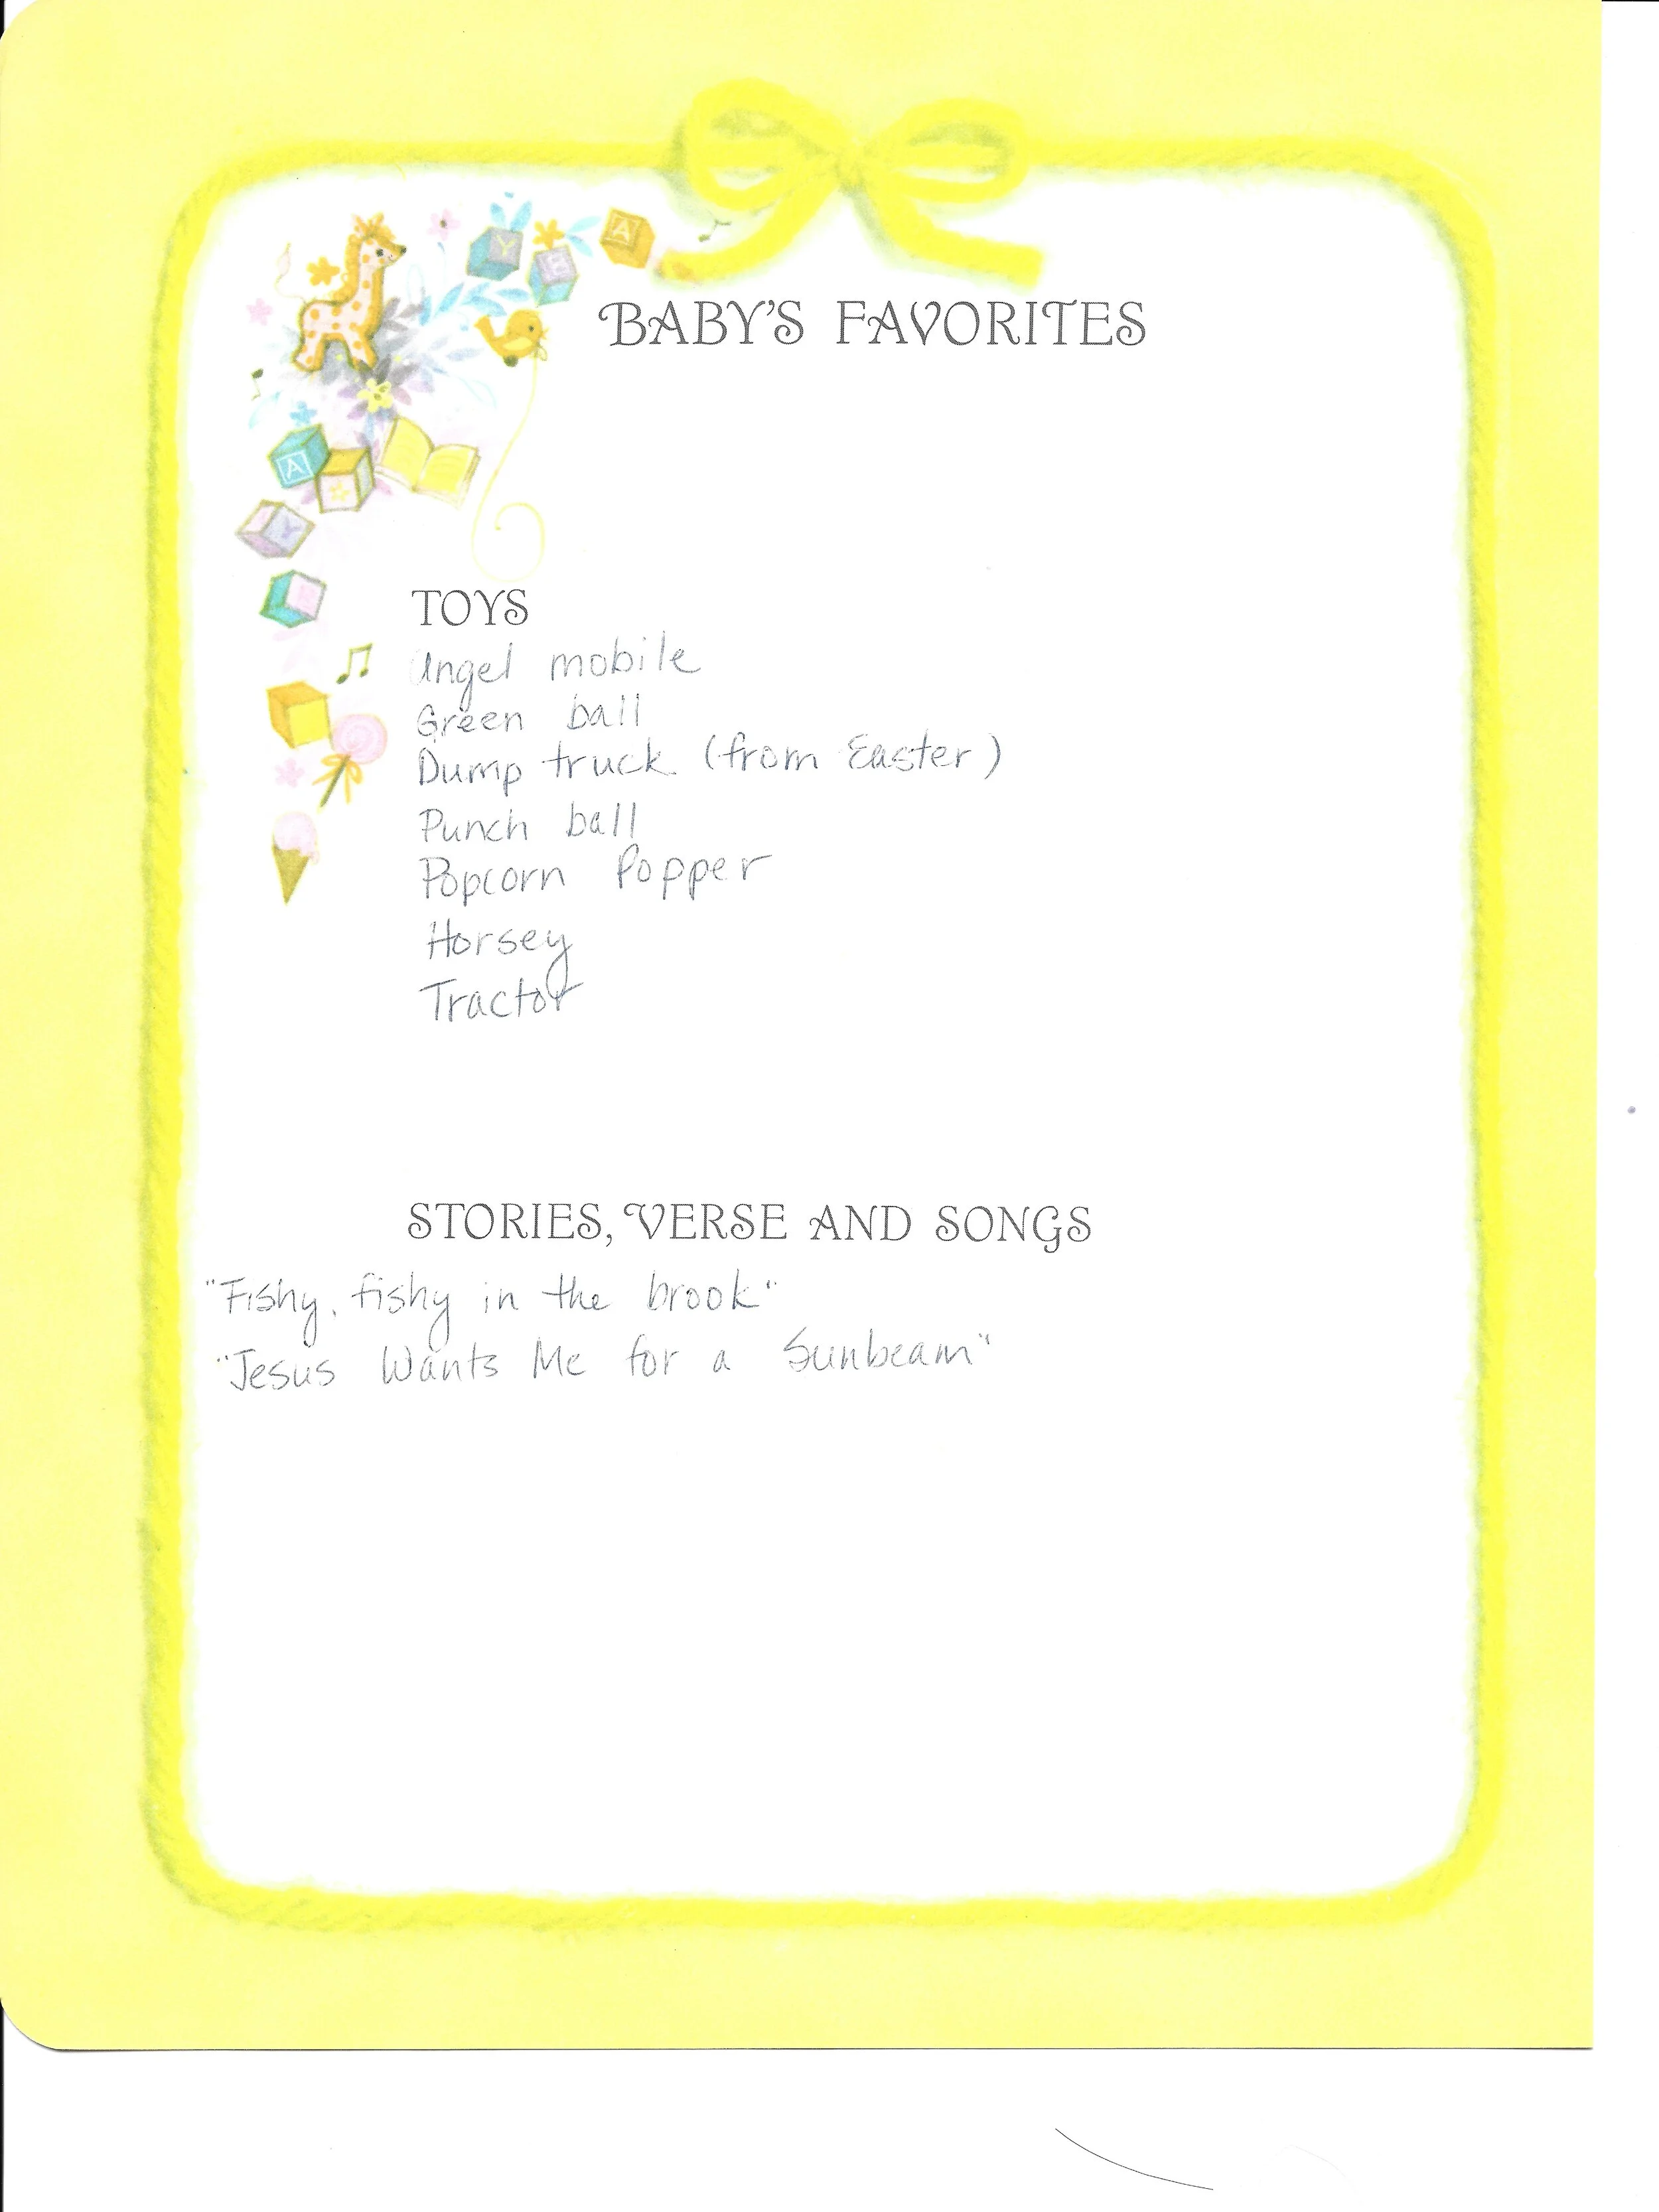 BABY'S FAVORITES
TOYS
Angel mobile
Green ball
Dump truck (from Easter)
Punch ball
Popcorn Popper
Horsey
Tractor
STORIES, VERSE AND SONGS
"Fishy, fishy in the brook"
"Jesus Wants Me for a Sunbeam"
Y
B
A
A
Y